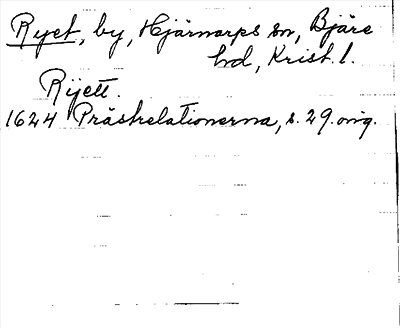 Ryet, by, Hjärnarps sn, Bjäre
hd, Krist. l.
Rijett.
1624 Prästrelationerna, s. 29. orig.